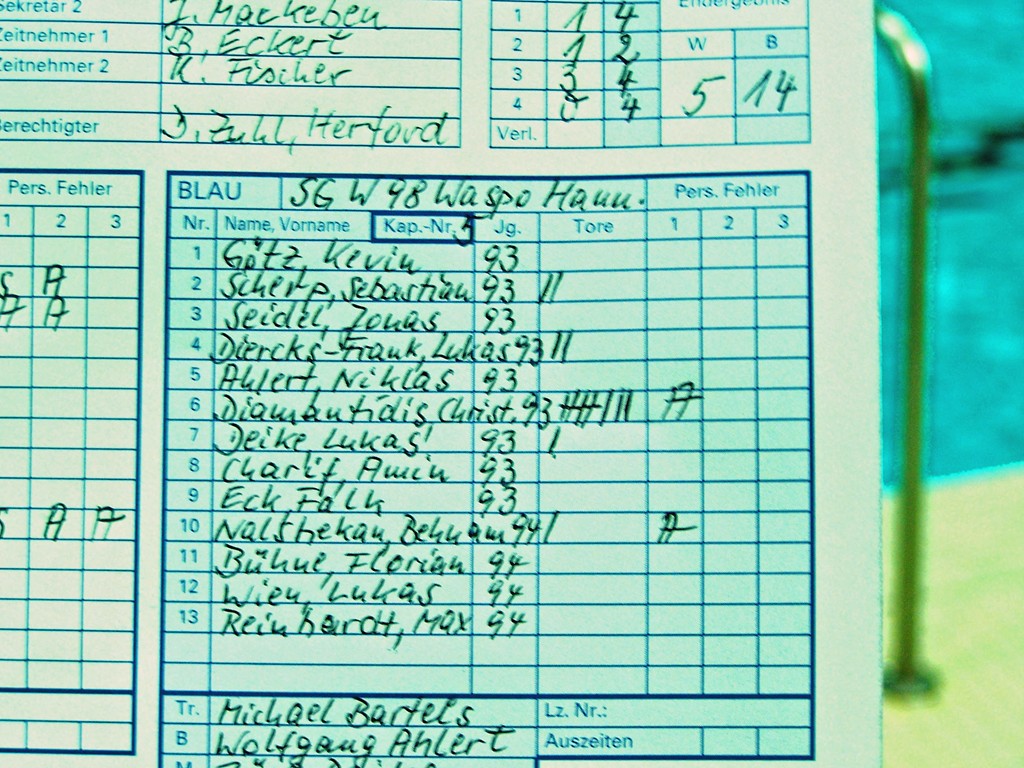 Sekretär 2 J. Mackeben
Zeitnehmer 1 B. Eckert
Zeitnehmer 2 K. Fischer
Berechtigter D. Zuhl, Herford
Endergebnis
1 1 4
2 1 2 W B
3 3 4 5 14
4 0 4
Verl.
Pers. Fehler
1 2 3
S A
A A
S A A
BLAU SG W 98 Waspo Hann. Pers. Fehler
Nr. Name, Vorname Kap.-Nr. 5 Jg. Tore 1 2 3
1 Götz, Kevin 93
2 Scherp, Sebastian 93 II
3 Seidel, Jonas 93
4 Diercks-Frank, Lukas 93 II
5 Ahlert, Niklas 93
6 Diamantidis, Christ. 93 IIII III A
7 Deike, Lukas 93 I
8 Charlif, Amin 93
9 Eck, Falk 93
10 Behnam 94 I A
11 Bühne, Florian 94
12 Wien, Lukas 94
13 Reinhardt, Max 94
Tr. Michael Bartels Lz. Nr.:
B Wolfgang Ahlert Auszeiten
M